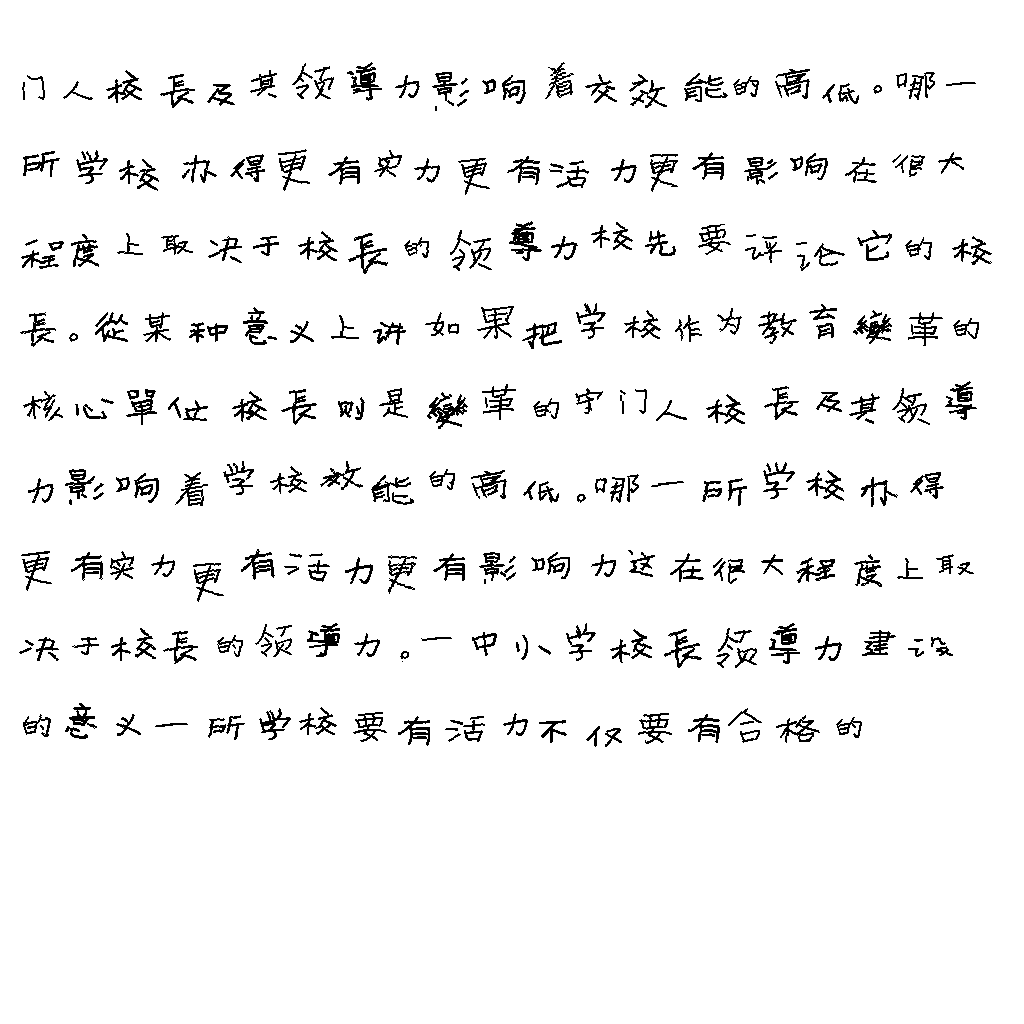 门人校長及其领導力影响着交效能的高低。哪一
所学校办得更有实力更有活力更有影响在很大
程度上取决于校長的领導力校先要评论它的校
長。從某种意义上讲如果把学校作为教育變革的
核心單位校長则是變革的守门人校長及其领導
力影响着学校效能的高低。哪一所学校办得
更有实力更有活力更有影响力这在很大程度上取
决于校長的领導力。一中小学校長领導力建设
的意义一所学校要有活力不仅要有合格的